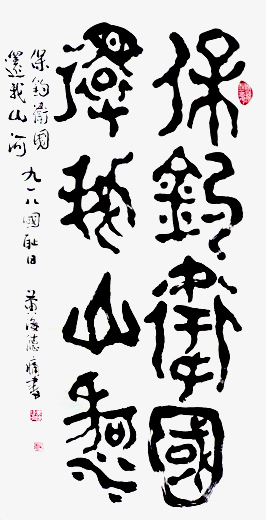 保釣衛國
還我山河
保釣衛國
還我山河
九一八國恥日
黃海德廣書